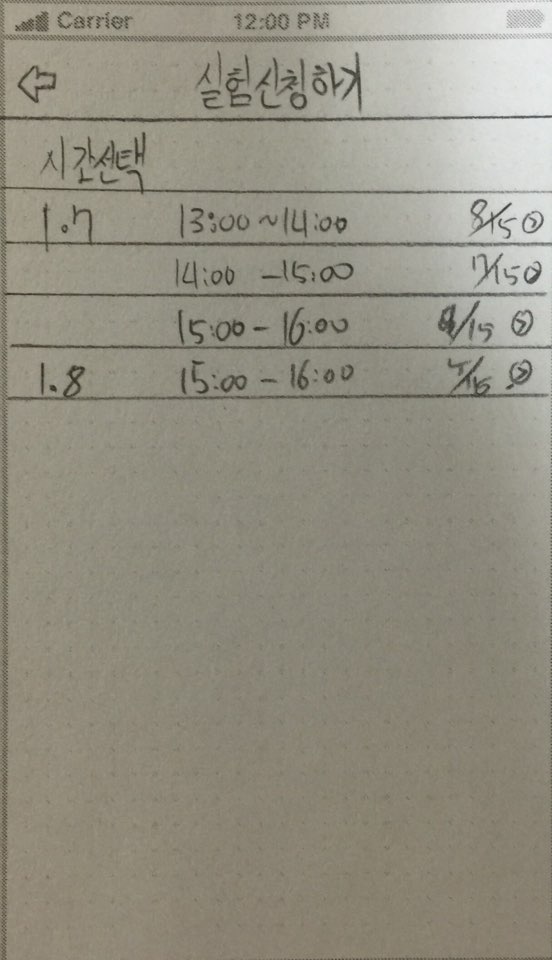 Carrier 12:00 PM
실험신청하기
시간선택
1.7 13:00~14:00 8/15
14:00 - 15:00 7/15
15:00 - 16:00 /15
1.8 15:00 - 16:00 /15